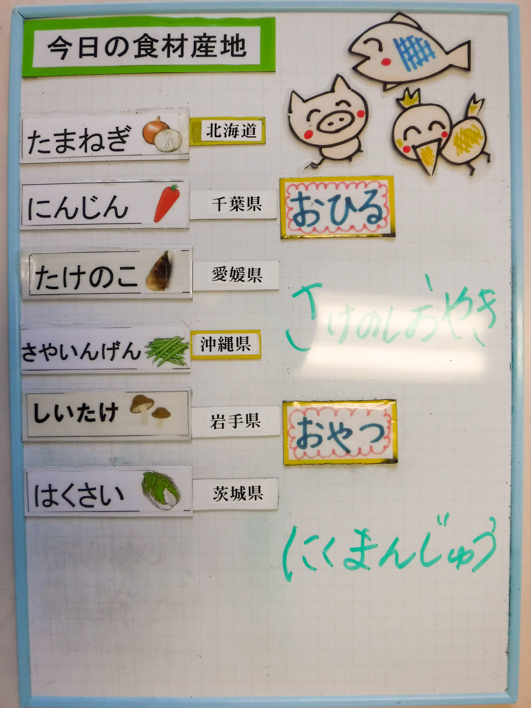 今日の食材産地
たまねぎ 北海道
にんじん 千葉県
たけのこ 愛媛県
さやいんげん 沖縄県
しいたけ 岩手県
はくさい 茨城県
おひる
さけのしおやき
おやつ
にくまんじゅう